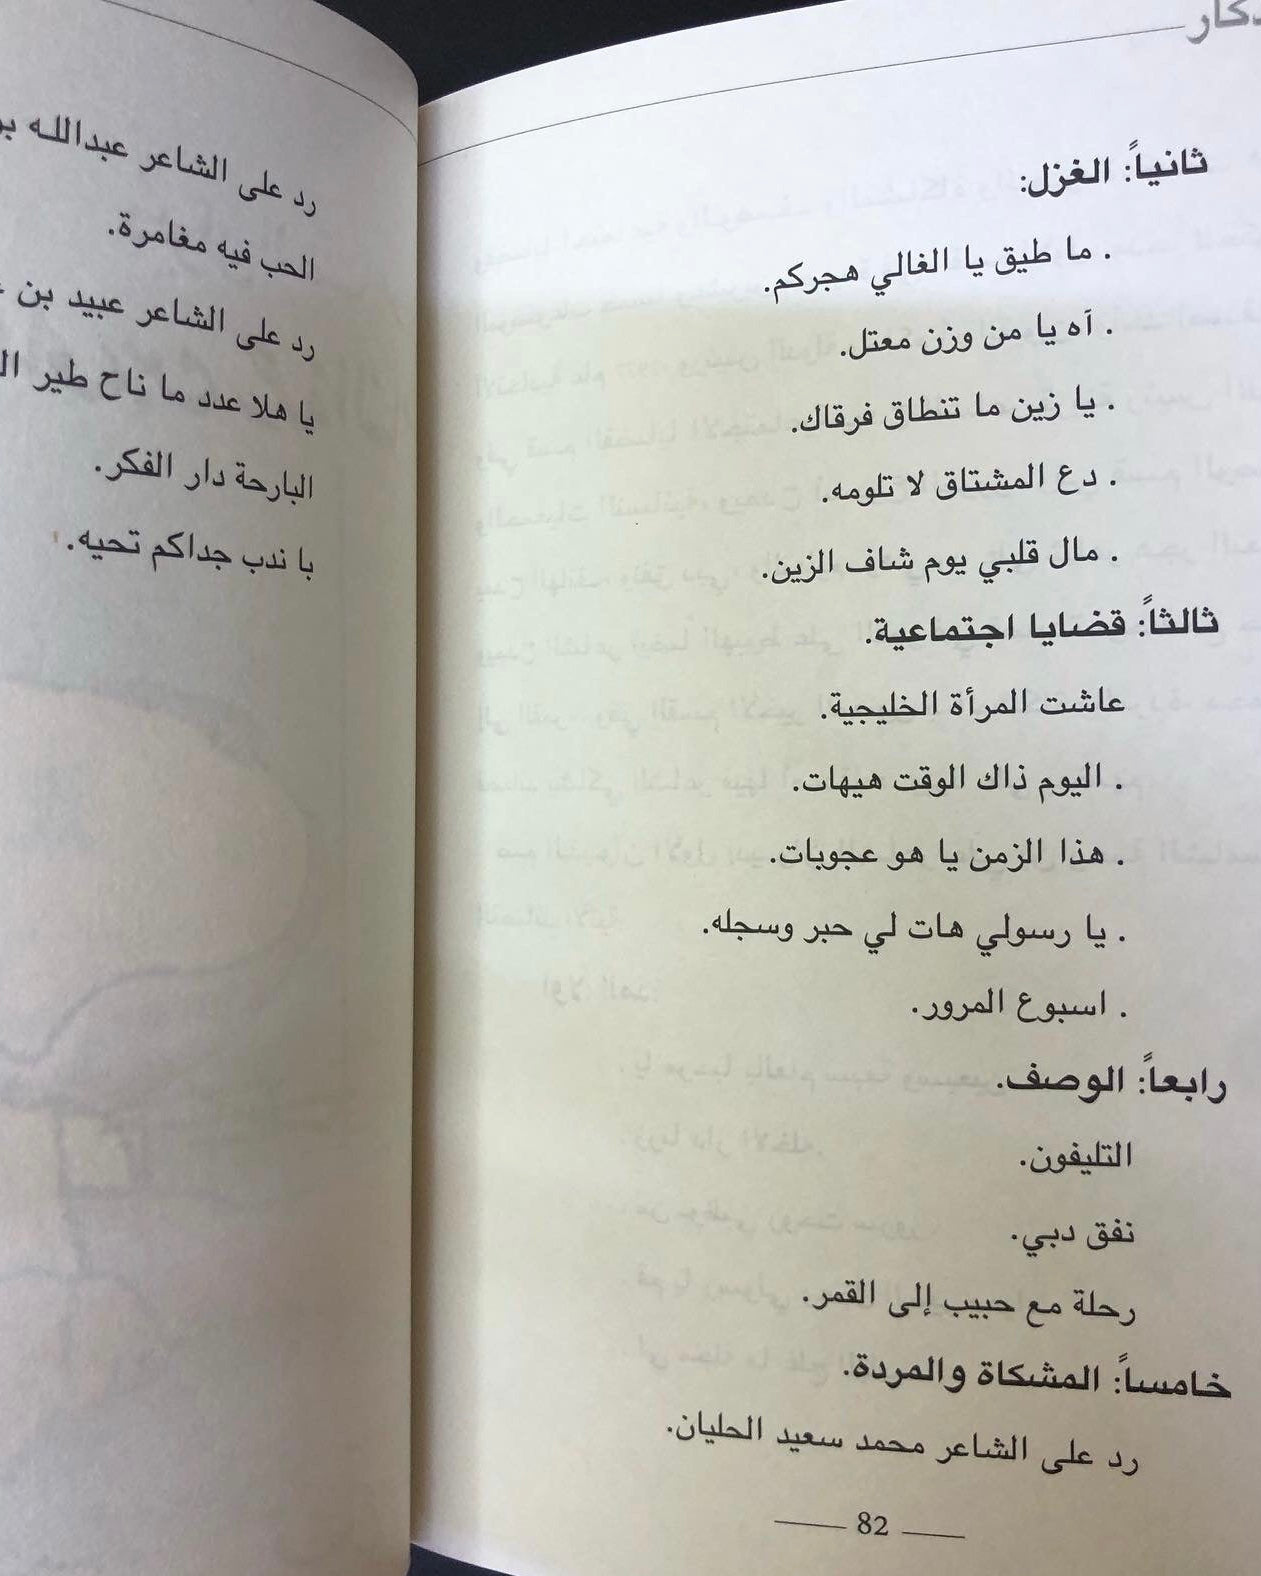 ثانياً: الغزل:
. ما طيق يا الغالي هجركم.
. آه يا من وزن معتل.
. يا زين ما تنطاق فرقاك.
. دع المشتاق لا تلومه.
. مال قلبي يوم شاف الزين.
ثالثاً: قضايا اجتماعية.
عاشت المرأة الخليجية.
. اليوم ذاك الوقت هيهات.
. هذا الزمن يا هو عجوبات.
. يا رسولي هات لي حبر وسجله.
. اسبوع المرور.
رابعاً: الوصف.
التليفون.
نفق دبي.
رحلة مع حبيب إلى القمر.
خامساً: المشكاة والمردة.
رد على الشاعر محمد سعيد الحليان.
82
رد على الشاعر عبدالله
الحب فيه مغامرة.
رد على الشاعر عبيد بن
يا هلا عدد ما ناح طير
البارحة دار الفكر.
با ندب جداكم تحيه.